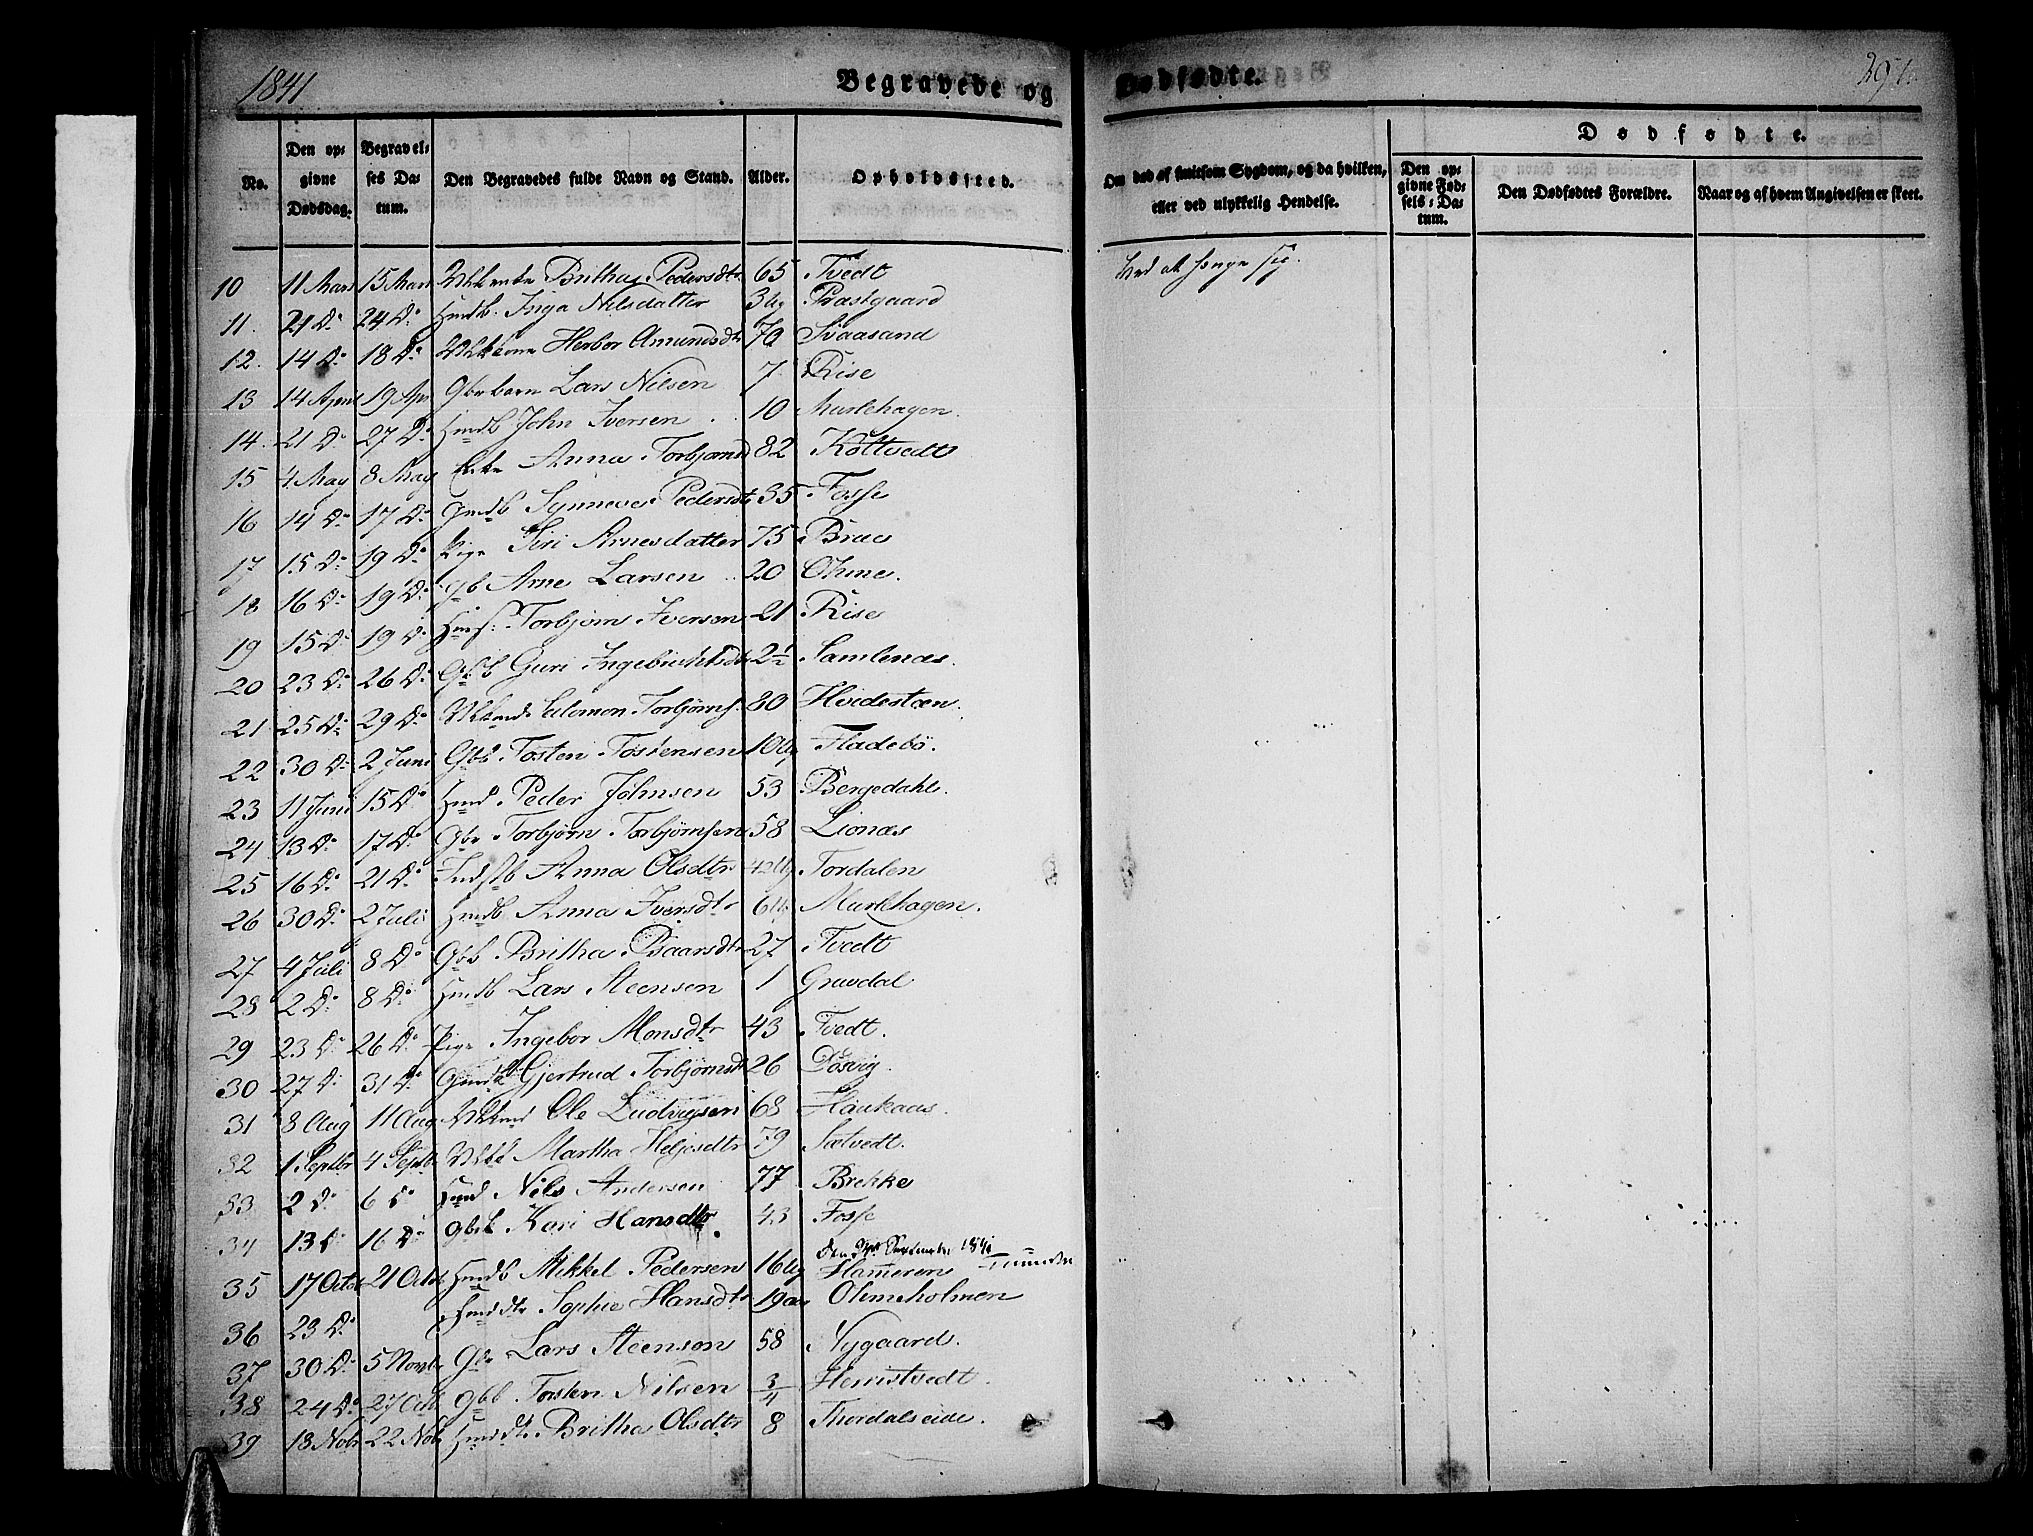 1841
Begravede og
Dødfødte.
291.
No.
Den opgivne Dødsdag.
Begravelses Datum.
Den Begravedes fulde Navn og Stand.
Alder.
Opholdssted.
Om død af smitsom Sygdom, og da hvilken, eller ved ulykkelig Hendelse.
Dødfødte.
Den opgivne Fødsels-Datum.
Den Dødfødtes Forældre.
Naar og af hvem Angivelsen er skeet.
10 11 Mars 15 Mars Britha Pedersdtr 65 Tvedt Ved at hænge sig.
11. 21 Do 24 Do Huusb. Inga Nilsdatter 3 Ug Præstgaard
12. 14 Do 18 Do Herbor Amundsdtr 70 Svaasand
13 14 April 19 Apr Gbrbarn Lars Nilsen 7 Rise
14. 21 Do 27 Do Huusb John Iversen 10 Murkhagen.
15 4 May 8 May Enke Anna Torbjørnsd 82 Koltvedt
16 14 Do 17 Do Synneve Pedersdtr 35 Fosse
17 15 Do 19 Do Pige Siri Arnesdatter 75 Brue
18 16 Do 19 Do Gb Arne Larsen 20 Ohme.
19 15 Do 19 Do Torbjørn Iversen 21 Rise
20 23 Do 26 Do Gbb Guri Ingebrichtsdtr 2½ Samlenæs.
21 25 Do 29 Do Salomon Torbjørns. 80 Hvidesteen.
22 30 Do 2 Juni Gbb Tosten Tostensen 10 Ug Fladebö.
23 11 Juni 15 Do Huusmd Peder Johnsen 53 Bergedahl.
24 13 Do 17 Do Gbr Torbjørn Torbjørnsen 58 Lionæs
25 16 Do 21 Do Indstb Anna Olsdtr 42 Ug Tordalen
26 30 Do 2 Juli Huusb Anna Iversdtr 6 Ug Murkhagen.
27 4 Juli 8 Do Gbb Britha Baarsdtr 27 Tvedt
28 2 Do 8 Do Huusb Lars Steensen 1 Gravdal
29 23 Do 26 Do Pige Ingebor Monsdtr 43 Tvedt.
30 27 Do 31 Do Gjertrud Torbjørnsdtr 26 Dosvig.
31 8 Aug 11 Aug Ole Ludvigsen 68 Haukaas.
32 1 Septbr 4 Septb Martha Heljesdtr 79 Sætvedt.
33 2 Do 6 Do Huusmd Nils Andersen 77 Brekke
34 13 Do 16 Do Kari Hansdtr. 43 Fosse
35 17 Octob 21 Octob Huusb Mikkel Pedersen 16 Ug Hameren
36 23 Do Sophie Hansdtr 19 aar Ohmeholmen
37 30 Do 5 Novbr Gbr Lars Steenson 58 Nygaard.
38 24 Do 27 Oct Gbb Torsten Nilsen 3/4 Heinstvedt.
39 18 Nobr 22 Nobr Britha Olsdtr 8 Thordalseide.